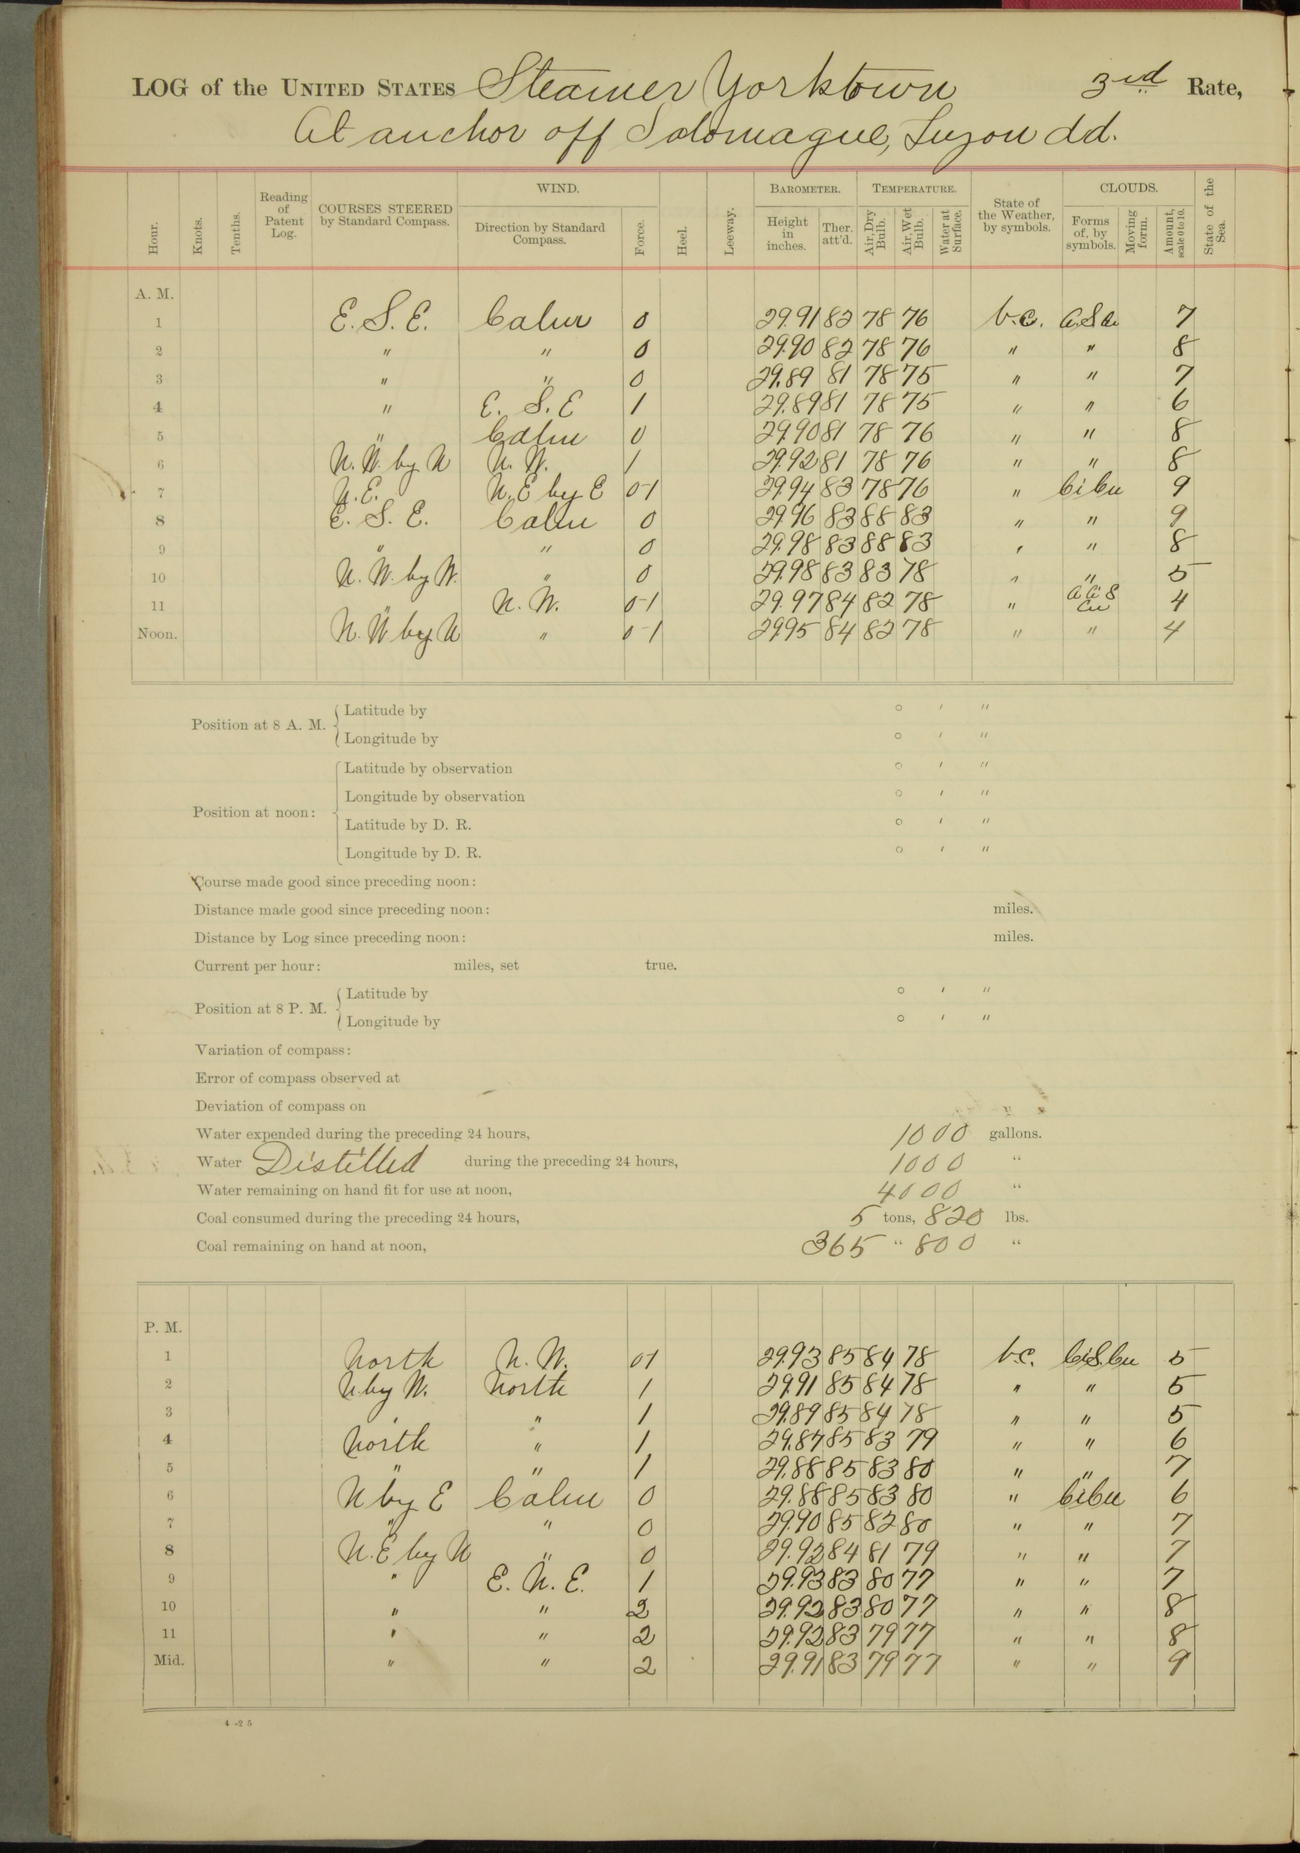 LOG of the UNITED STATES Steamer Yorktown 3rd Rate,
At anchor off Solomague, Luzon dd.
Hour. Knots. Tenths. Reading of Patent Log. COURSES STEERED by Standard Compass. WIND. Direction by Standard Compass. Force. Heel. Leeway. BAROMETER. Height in inches. Ther. att'd. TEMPERATURE. Air, Dry Bulb. Air, Wet Bulb. Water at Surface. State of the Weather, by symbols. CLOUDS. Forms of, by symbols. Moving form. Amount, scale 0 to 10. State of the Sea.
A. M.
1 E. S. E. Calm 0 29.91 82 78 76 b.c. 7
2 " " 0 29.90 82 78 76 " " 8
3 " " 0 29.89 81 78 75 " " 7
4 " E. S. E 1 29.89 81 78 75 " " 6
5 " Calm 0 29.90 81 78 76 " " 8
6 N. W. by N N. W. 1 29.92 81 78 76 " " 8
7 N. E. N. E by E 0-1 29.94 83 78 76 " Ci Cu 9
8 E. S. E. Calm 0 29.96 83 88 83 " " 9
9 " " 0 29.98 83 88 83 " " 8
10 N. W. by W. " 0 29.98 83 83 78 " " 5
11 " N. W. 0-1 29.97 84 82 78 " Cu 4
Noon. N. W by N " 0-1 29.95 84 82 78 " " 4
Position at 8 A. M. Latitude by ° ′ ″
Longitude by ° ′ ″
Position at noon: Latitude by observation ° ′ ″
Longitude by observation ° ′ ″
Latitude by D. R. ° ′ ″
Longitude by D. R. ° ′ ″
Course made good since preceding noon:
Distance made good since preceding noon: miles.
Distance by Log since preceding noon: miles.
Current per hour: miles, set true.
Position at 8 P. M. Latitude by ° ′ ″
Longitude by ° ′ ″
Variation of compass:
Error of compass observed at
Deviation of compass on
Water expended during the preceding 24 hours, 1000 gallons.
Water Distilled during the preceding 24 hours, 1000 "
Water remaining on hand fit for use at noon, 4000 "
Coal consumed during the preceding 24 hours, 5 tons, 820 lbs.
Coal remaining on hand at noon, 365 " 800 "
P. M.
1 North N. W. 01 29.93 85 84 78 b.c. Ci.S.Cu 5
2 N by W. North 1 29.91 85 84 78 " " 5
3 " " 1 29.89 85 84 78 " " 5
4 North " 1 29.87 85 83 79 " " 6
5 " " 1 29.88 85 83 80 " " 7
6 N by E Calm 0 29.88 85 83 80 " Ci Cu 6
7 " " 0 29.90 85 82 80 " " 7
8 N. E by N " 0 29.92 84 81 79 " " 7
9 " E. N. E. 1 29.93 83 80 77 " " 7
10 " " 2 29.92 83 80 77 " " 8
11 " " 2 29.92 83 79 77 " " 8
Mid. " " 2 29.91 83 79 77 " " 9
4-25